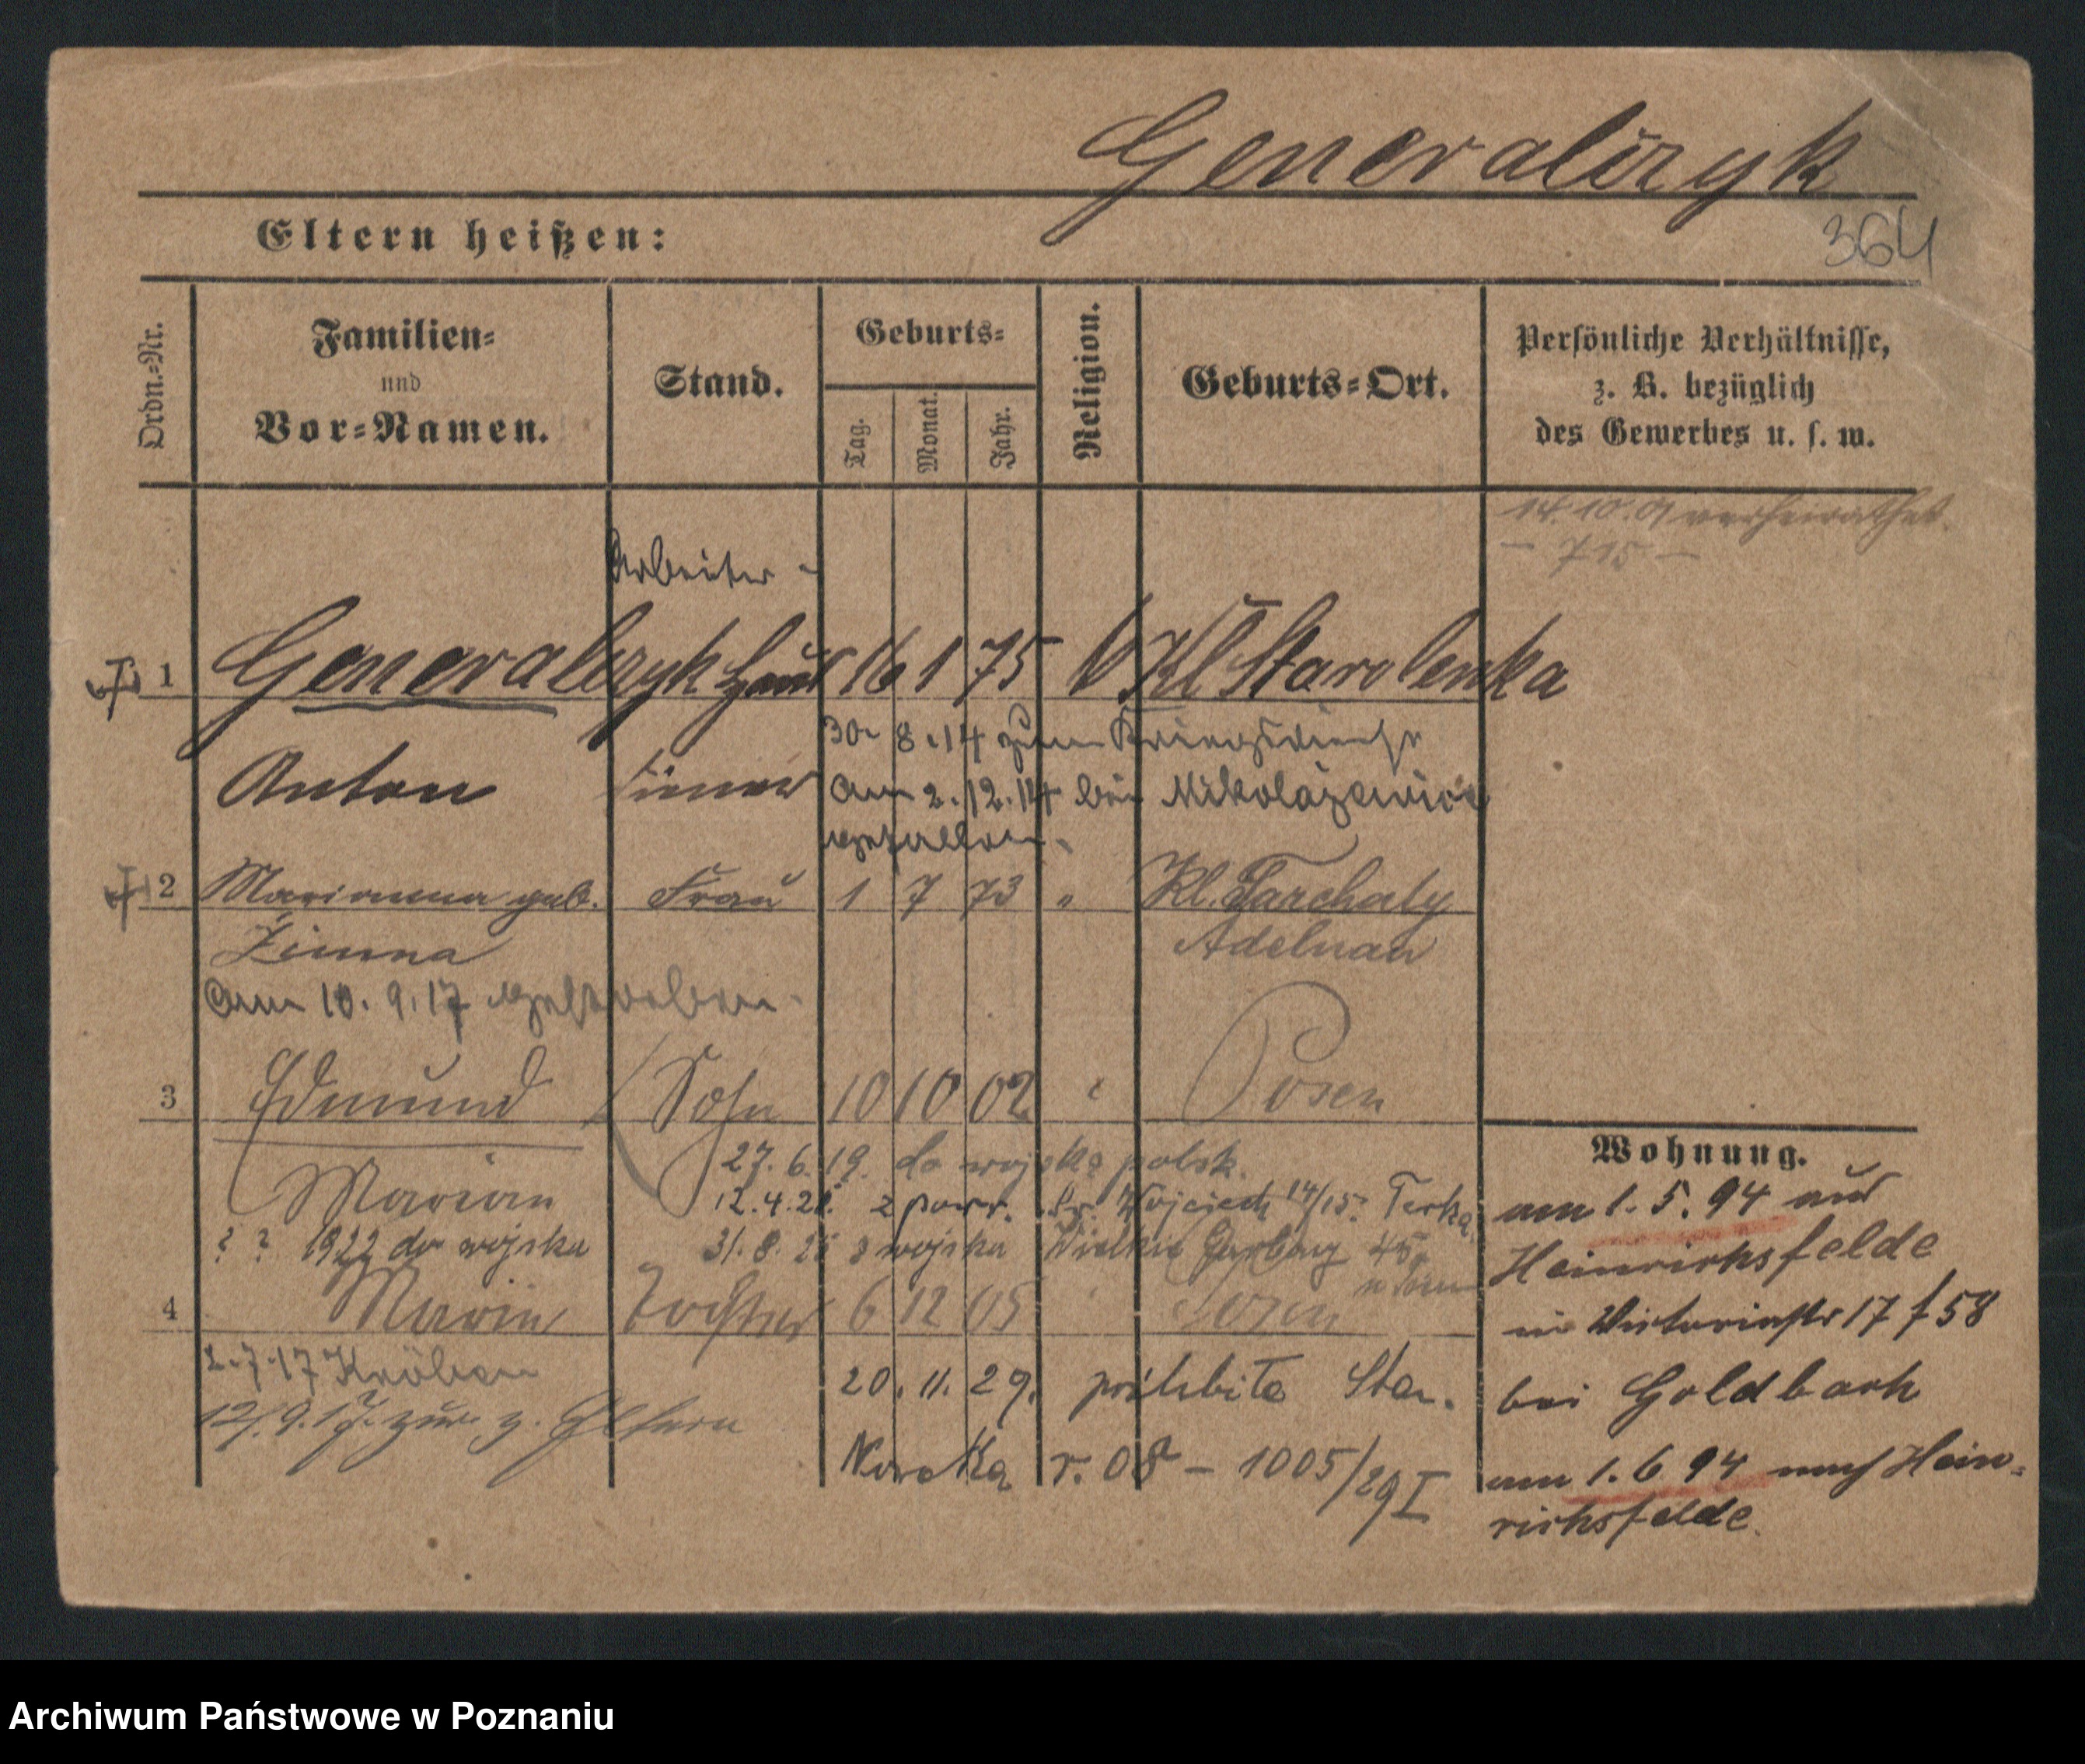 Generalczyk
364
Eltern heißen:
Ordn.-Nr.
Familien-
und
Vor-Namen.
Stand.
Geburts-
Tag.
Monat.
Jahr.
Religion.
Geburts-Ort.
Persönliche Verhältnisse,
z. B. bezüglich
des Gewerbes u. s. w.
14.10.01 verheirathet.
– 715 –
Arbeiter
1 Generalczyk Haus 16 1 75 Kl Starolenka
30. 8.14 zum Kriegsdienste
Anton diener am 2.12.14 bei
gefallen.
2 Marianna geb. Frau 1 7 73 " Kl. Tarchaly
Zimna Adelnau
Am 10.9.17 gestorben.
3 Edmund Sohn 10 10 02 Posen
27.6.19. do wojska polsk.
Marian 12.4.21. z powr. Św. Wojciech 14/15
? ? 1922 do wojska 31.8.25 z wojska Wielkie Garbary 45
4 Maria Tochter 6 12 05 Posen
2.7.17 Kröben
12.9.17 zur. z. Eltern
20.11.29. przybita Stan.
r. 08 – 1005/29 I
Wohnung.
am 1.5.94 aus
Heinrichsfelde
in Victoriastr 17 f 58
bei Goldbach
am 1.6 94 nach Hein-
richsfelde.
Archiwum Państwowe w Poznaniu